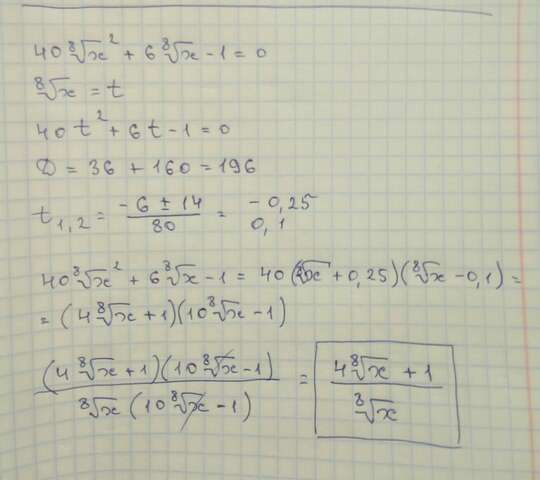 40 ⁸√x² + 6 ⁸√x - 1 = 0
⁸√x = t
40 t² + 6 t - 1 = 0
D = 36 + 160 = 196
t₁,₂ = (- 6 ± 14)/80 = - 0,25 0,1
40 ⁸√x² + 6 ⁸√x - 1 = 40 (⁸√x + 0,25)(⁸√x - 0,1) =
= (4 ⁸√x + 1)(10 ⁸√x - 1)
(4 ⁸√x + 1)(10 ⁸√x - 1) / ⁸√x (10 ⁸√x - 1) = (4 ⁸√x + 1) / ⁸√x